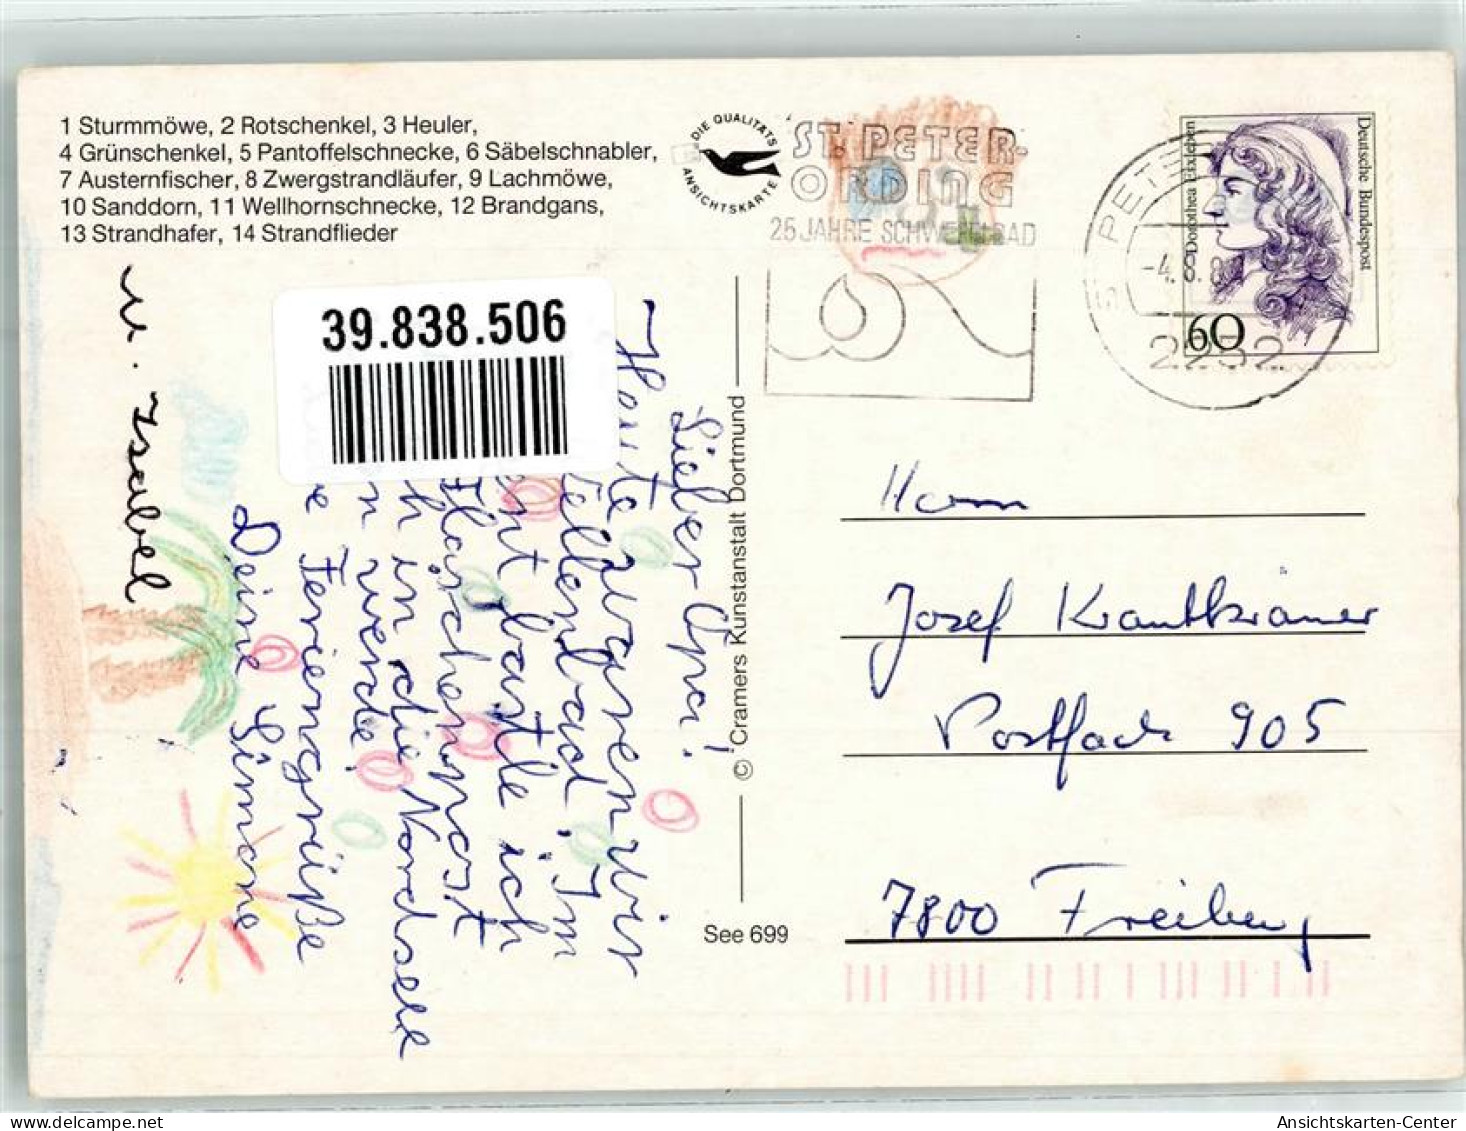 1 Sturmmöwe, 2 Rotschenkel, 3 Heuler,
4 Grünschenkel, 5 Pantoffelschnecke, 6 Säbelschnabler,
7 Austernfischer, 8 Zwergstrandläufer, 9 Lachmöwe,
10 Sanddorn, 11 Wellhornschnecke, 12 Brandgans,
13 Strandhafer, 14 Strandflieder
DIE QUALITÄTS
ANSICHTSKARTE
ST. PETER-
ORDING
25 JAHRE SCHWEFELBAD
ST PETER
-4.8.8
2252
Deutsche Bundespost
Dorothea Erxleben
60
39.838.506
Lieber Opa!
Heute waren wir
ellenbad. Im
nt bastle ich
Flaschenpost
h in die Nordsee
n werde.
e Feriengrüße
Deine Simone
u. Isabel
© Cramers Kunstanstalt Dortmund
See 699
Herrn
Josef Krautkrämer
Postfach 905
7800 Freiburg
Ansichtskarten-Center